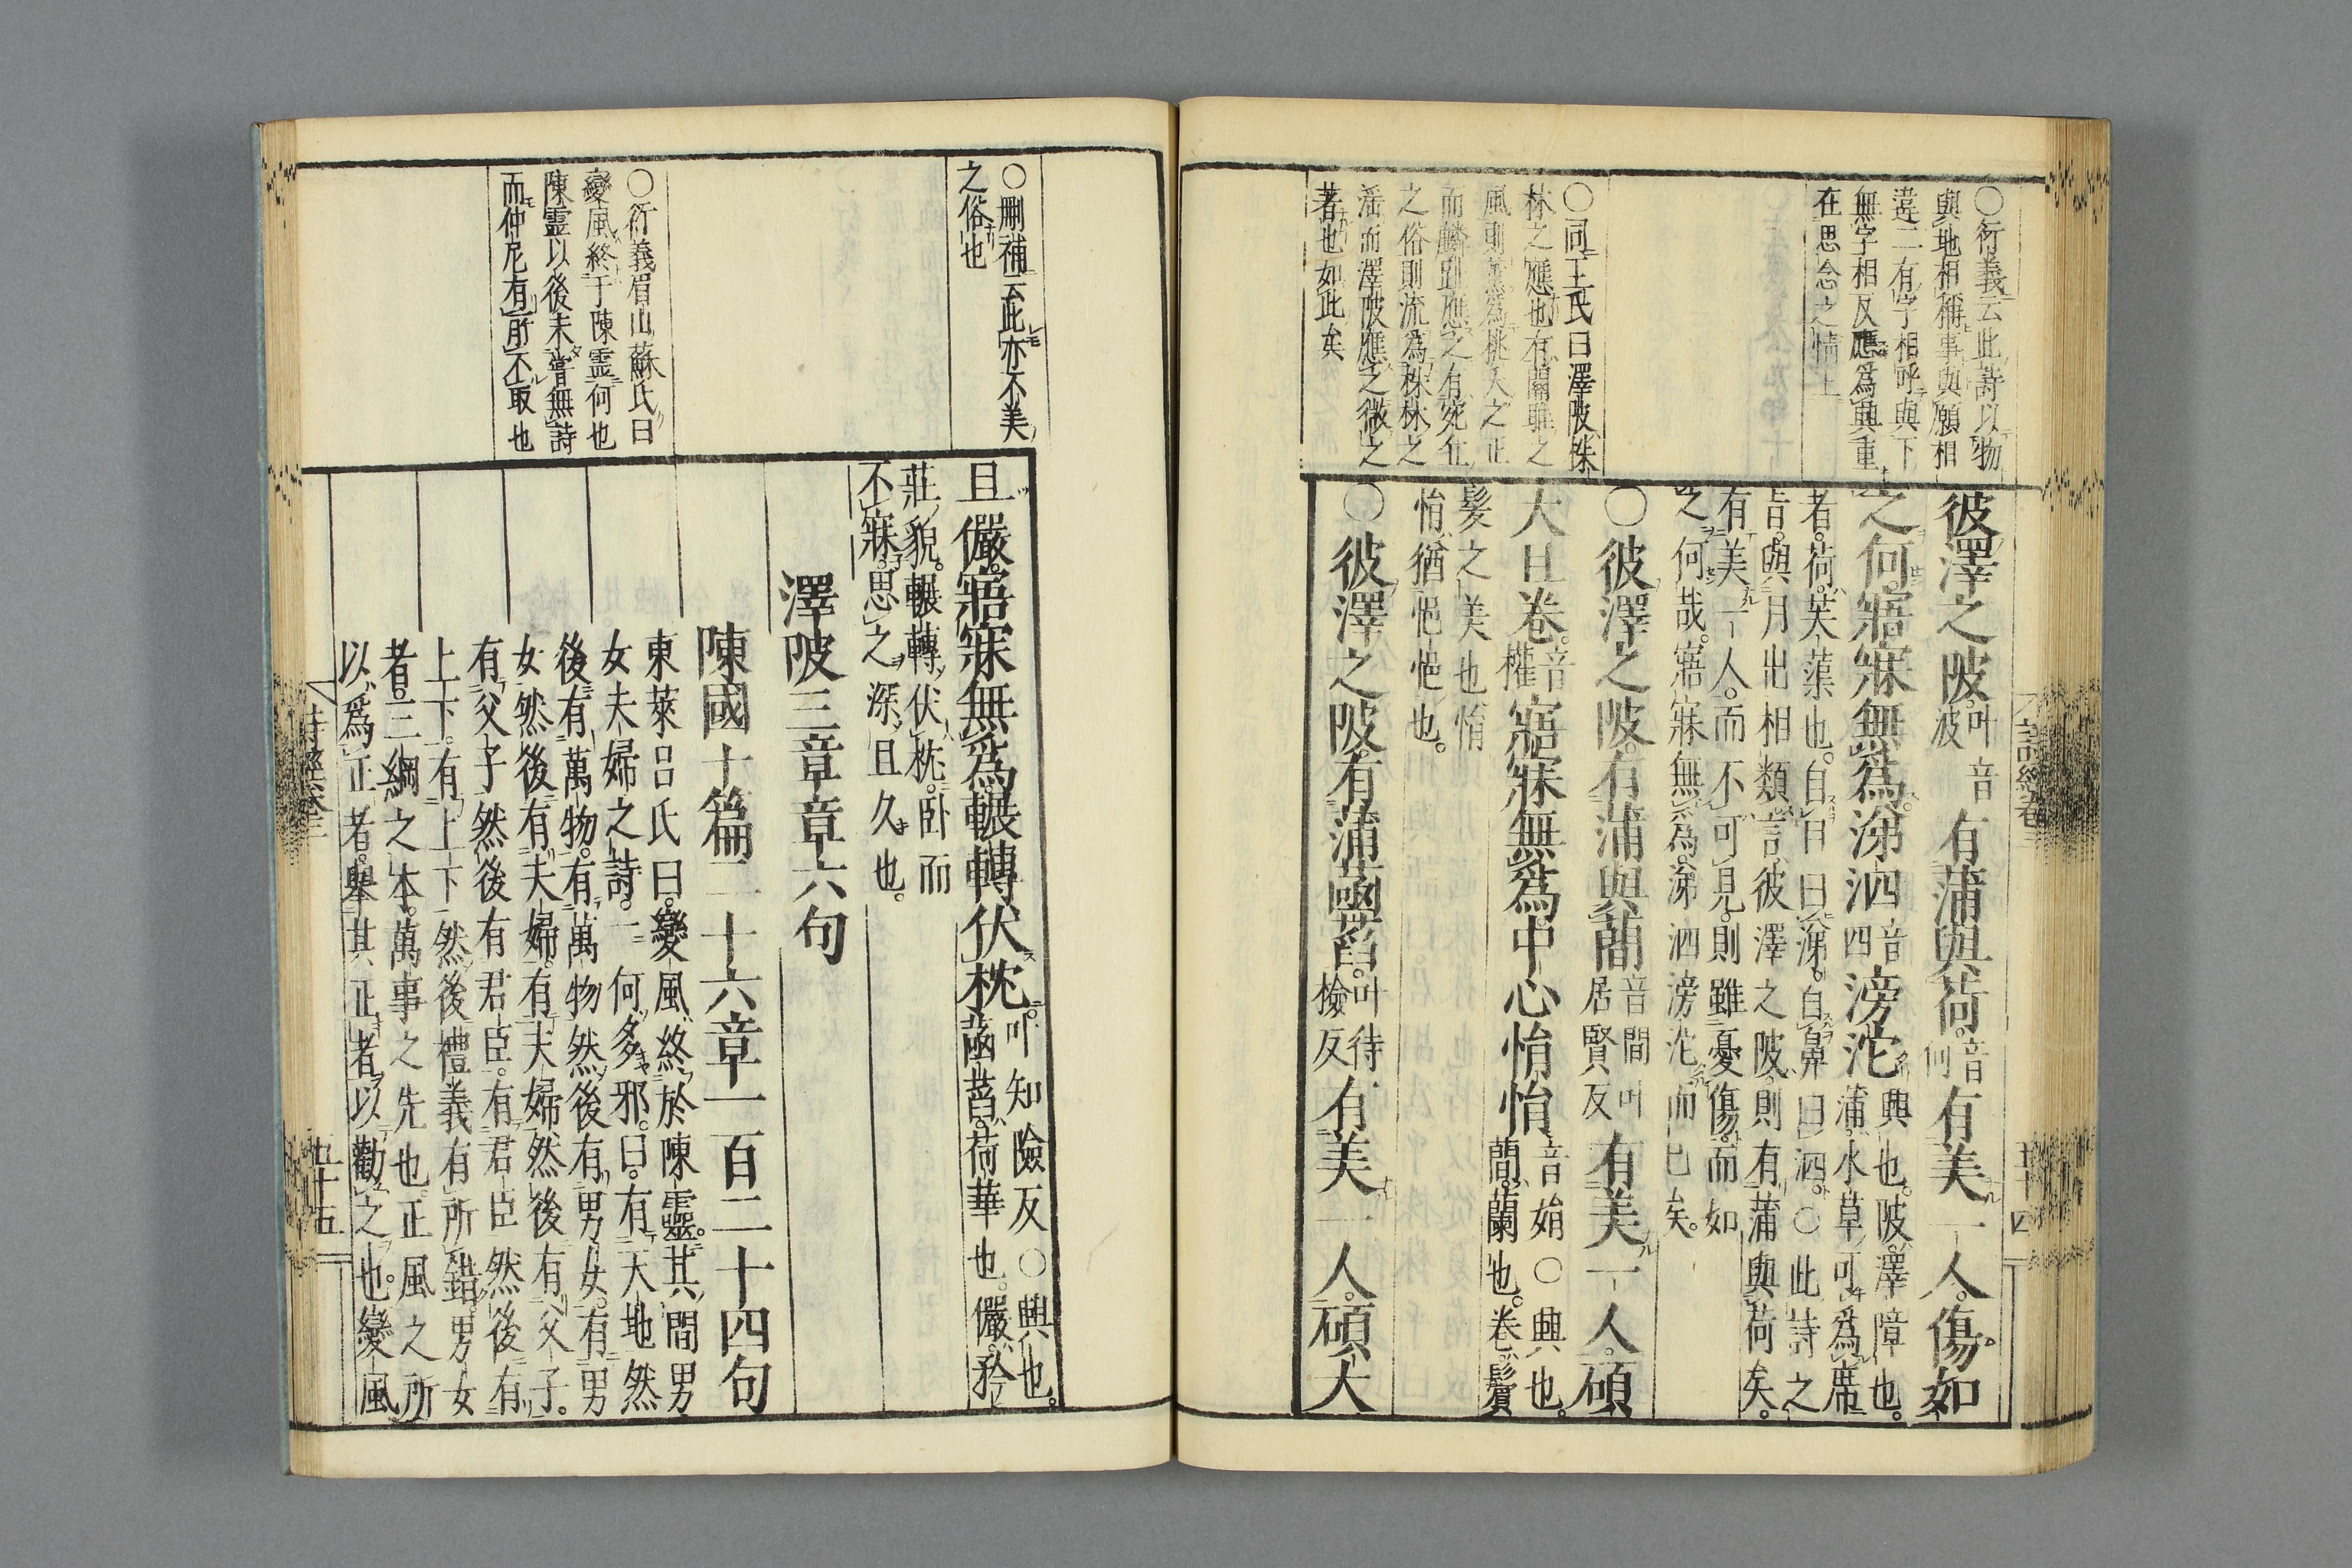 ○衍義云此詩以物
與地相稱事與願相
違二有字相呼與下
無字相反應爲興重
在思念之情上
○同王氏曰澤陂株
林之應也有關雎之
風則黨爲桃夭之正
而麟趾應之有宛丘
之俗則流爲株林之
淫而澤陂應之微之
著也如此矣
彼澤之陂叶音波有蒲與荷音何有美一人傷如
之何寤寐無爲涕泗音四滂沱興也陂澤障也
蒲水草可爲席
者荷芙蕖也自目曰涕自鼻曰泗○此詩之
旨與月出相類言彼澤之陂則有蒲與荷矣
有美一人而不可見則雖憂傷而如
之何哉寤寐無爲涕泗滂沱而已矣
○彼澤之陂有蒲與蕑音間叶居賢反有美一人碩
大且卷音權寤寐無爲中心悁悁音娟○興也
蕑蘭也卷鬢
髮之美也悁
悁猶悒悒也
○彼澤之陂有蒲菡萏叶待檢反有美一人碩大
詩經卷三
五十四
○刪補云此亦不美
之俗也
○衍義眉山蘇氏曰
變風終于陳霊何也
陳霊以後未嘗無詩
而仲尼有所不取也
且儼寤寐無爲輾轉伏枕叶知險反○興也
菡萏荷華也儼矜
莊貌輾轉伏枕卧而
不寐思之深且久也
澤陂三章章六句
陳國十篇二十六章一百二十四句
東萊呂氏曰變風終於陳靈其間男
女夫婦之詩一何多邪曰有天地然
後有萬物有萬物然後有男女有男
女然後有夫婦有夫婦然後有父子
有父子然後有君臣有君臣然後有
上下有上下然後禮義有所錯男女
者三綱之本萬事之先也正風之所
以爲正者舉其正者以勸之也變風
詩經卷三
五十五